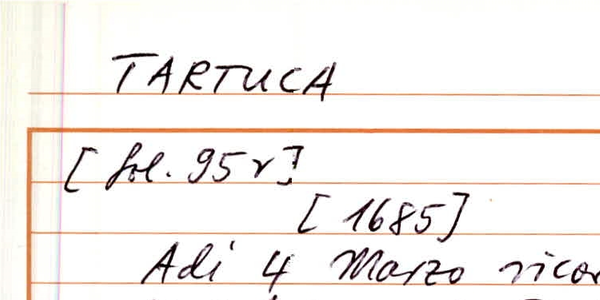 TARTUCA
[fol. 95r]
[1685]
Adi 4 Marzo